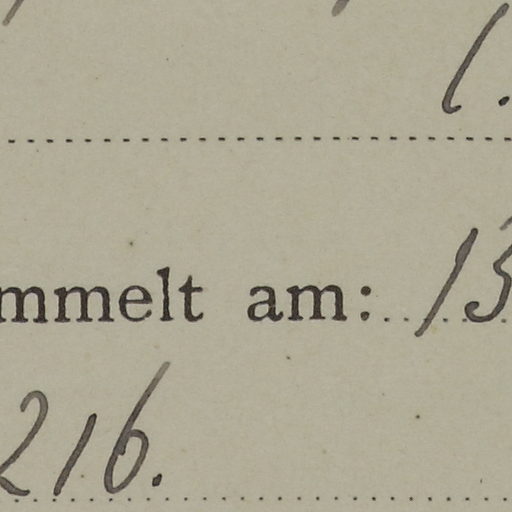 1.
mmelt am: 15
216.